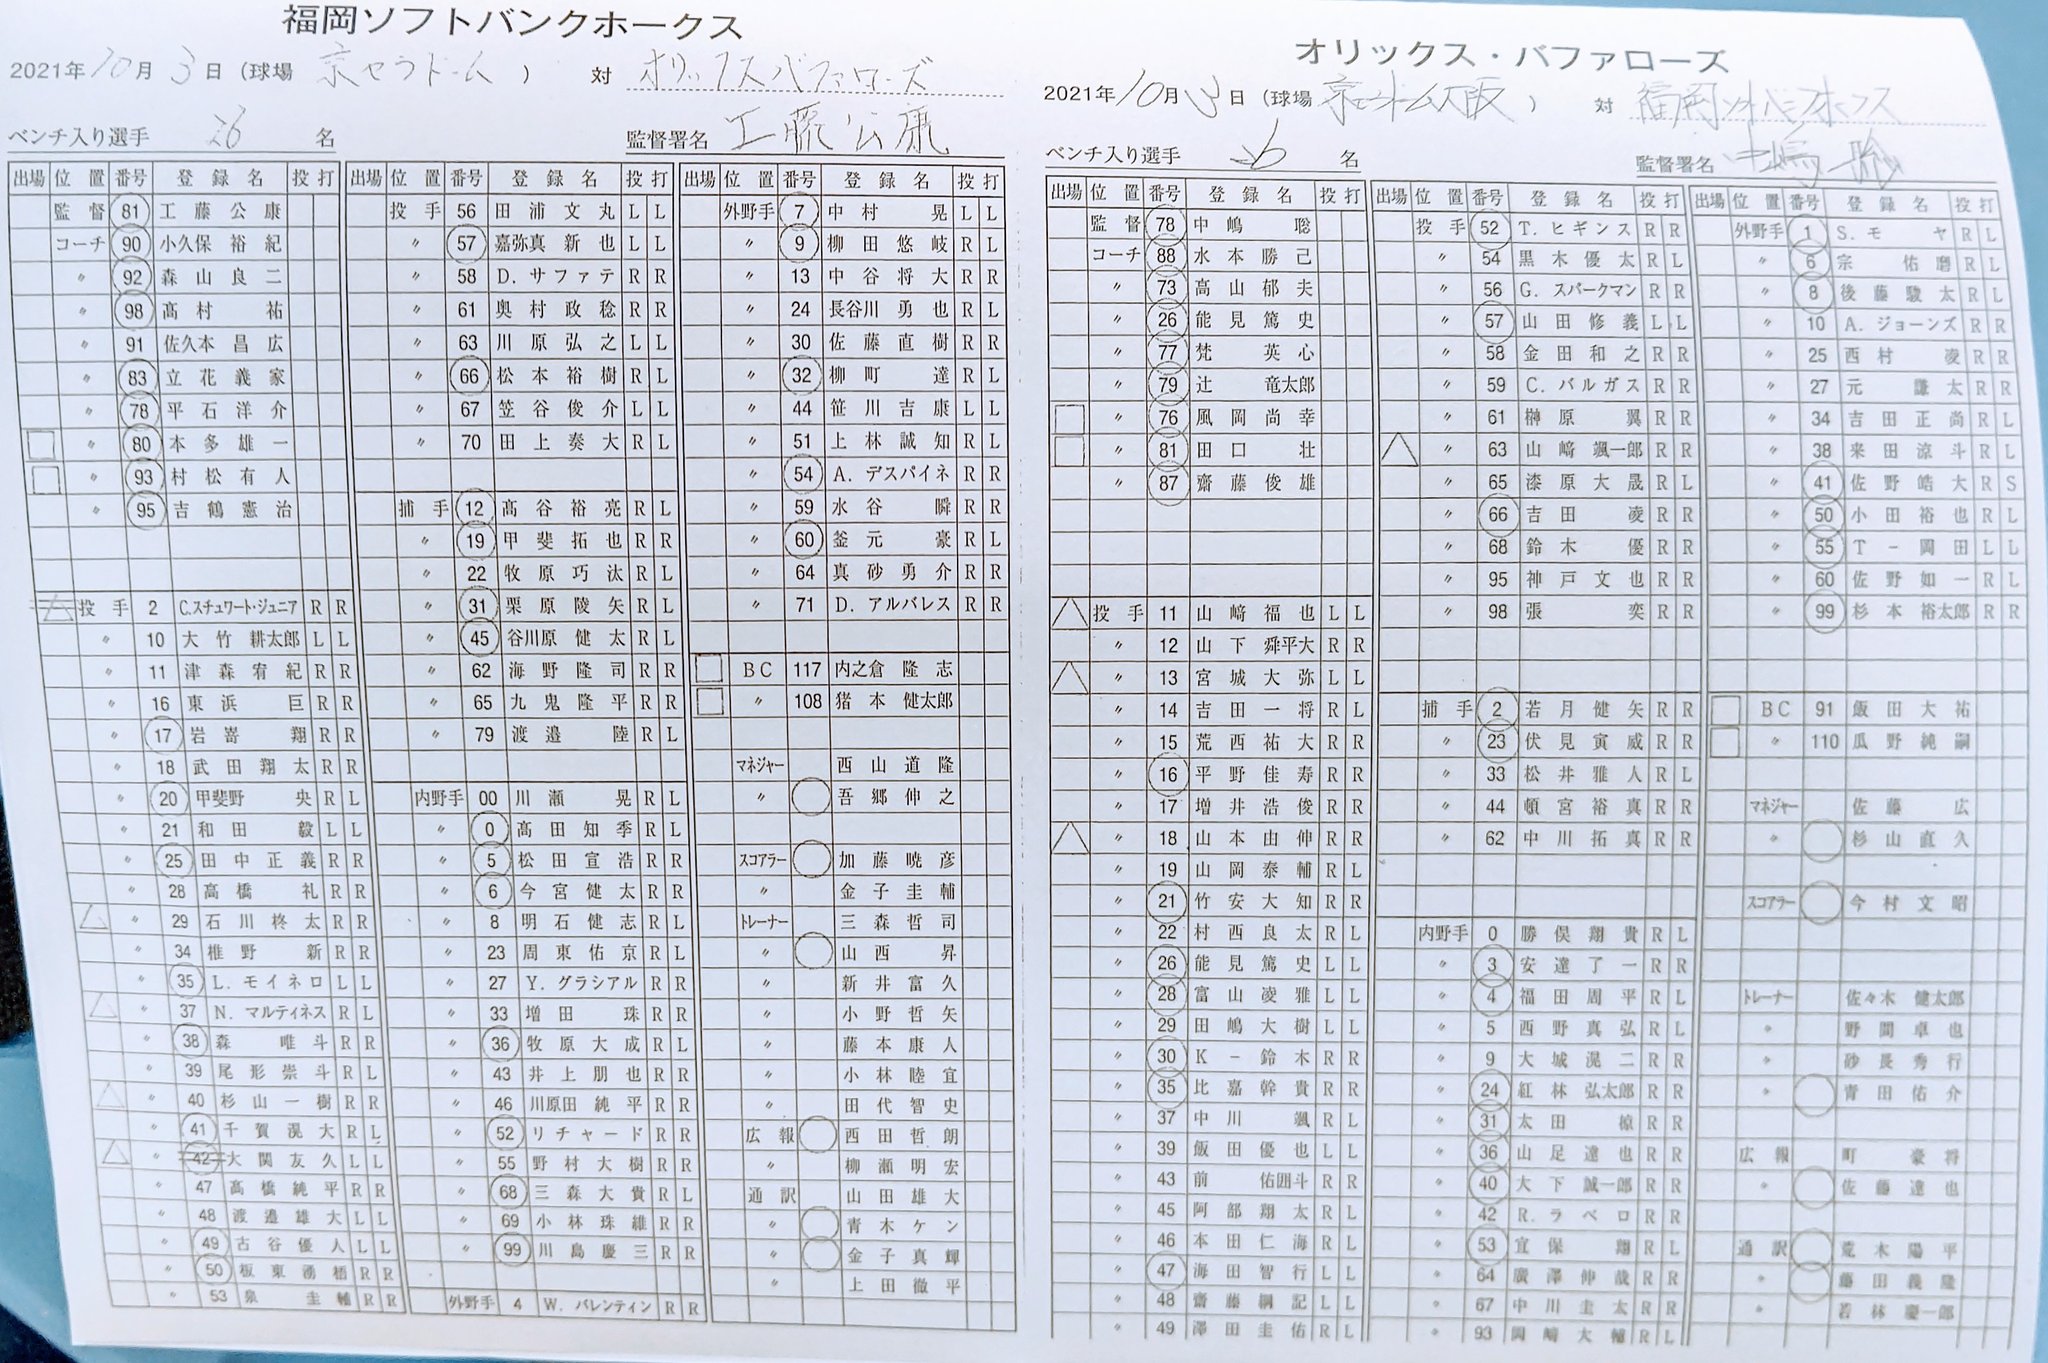 福岡ソフトバンクホークス
2021年10月3日（球場 京セラドーム ） 対 オリックスバファローズ
ベンチ入り選手 26 名 監督署名 工藤公康
出場 位置 番号 登録名 投 打
監督 81 工藤公康
コーチ 90 小久保裕紀
〃 92 森山良二
〃 98 髙村祐
〃 91 佐久本昌広
〃 83 立花義家
〃 78 平石洋介
〃 80 本多雄一
〃 93 村松有人
〃 95 吉鶴憲治
投手 2 C.スチュワート・ジュニア R R
〃 10 大竹耕太郎 L L
〃 11 津森宥紀 R R
〃 16 東浜巨 R R
〃 17 岩嵜翔 R R
〃 18 武田翔太 R R
〃 20 甲斐野央 R L
〃 21 和田毅 L L
〃 25 田中正義 R R
〃 28 高橋礼 R R
〃 29 石川柊太 R R
〃 34 椎野新 R R
〃 35 L.モイネロ L L
〃 37 N.マルティネス R L
〃 38 森唯斗 R R
〃 39 尾形崇斗 R L
〃 40 杉山一樹 R R
〃 41 千賀滉大 R L
〃 42 大関友久 L L
〃 47 高橋純平 R R
〃 48 渡邉雄大 L L
〃 49 古谷優人 L L
〃 50 板東湧梧 R R
〃 53 泉圭輔 R R
出場 位置 番号 登録名 投 打
投手 56 田浦文丸 L L
〃 57 嘉弥真新也 L L
〃 58 D.サファテ R R
〃 61 奥村政稔 R R
〃 63 川原弘之 L L
〃 66 松本裕樹 R L
〃 67 笠谷俊介 L L
〃 70 田上奏大 R L
捕手 12 髙谷裕亮 R L
〃 19 甲斐拓也 R R
〃 22 牧原巧汰 R L
〃 31 栗原陵矢 R L
〃 45 谷川原健太 R L
〃 62 海野隆司 R R
〃 65 九鬼隆平 R R
〃 79 渡邉陸 R L
内野手 00 川瀬晃 R L
〃 0 髙田知季 R L
〃 5 松田宣浩 R R
〃 6 今宮健太 R R
〃 8 明石健志 R L
〃 23 周東佑京 R L
〃 27 Y.グラシアル R R
〃 33 増田珠 R R
〃 36 牧原大成 R L
〃 43 井上朋也 R R
〃 46 川原田純平 R R
〃 52 リチャード R R
〃 55 野村大樹 R R
〃 68 三森大貴 R L
〃 69 小林珠維 R R
〃 99 川島慶三 R R
外野手 4 W.バレンティン R R
出場 位置 番号 登録名 投 打
外野手 7 中村晃 L L
〃 9 柳田悠岐 R L
〃 13 中谷将大 R R
〃 24 長谷川勇也 R L
〃 30 佐藤直樹 R R
〃 32 柳町達 R L
〃 44 笹川吉康 L L
〃 51 上林誠知 R L
〃 54 A.デスパイネ R R
〃 59 水谷瞬 R R
〃 60 釜元豪 R L
〃 64 真砂勇介 R R
〃 71 D.アルバレス R R
BC 117 内之倉隆志
〃 108 猪本健太郎
マネジャー 西山道隆
〃 吾郷伸之
スコアラー 加藤暁彦
〃 金子圭輔
トレーナー 三森哲司
〃 山西昇
〃 新井富久
〃 小野哲矢
〃 藤本康人
〃 小林睦宜
〃 田代智史
広報 西田哲朗
〃 柳瀬明宏
通訳 山田雄大
〃 青木ケン
〃 金子真輝
〃 上田徹平
オリックス・バファローズ
2021年10月3日（球場 京セラドーム大阪 ） 対 福岡ソフトバンクホークス
ベンチ入り選手 26 名 監督署名 中嶋聡
出場 位置 番号 登録名 投 打
監督 78 中嶋聡
コーチ 88 水本勝己
〃 73 高山郁夫
〃 26 能見篤史
〃 77 梵英心
〃 79 辻竜太郎
〃 76 風岡尚幸
〃 81 田口壮
〃 87 齋藤俊雄
投手 11 山﨑福也 L L
〃 12 山下舜平大 R R
〃 13 宮城大弥 L L
〃 14 吉田一将 R L
〃 15 荒西祐大 R R
〃 16 平野佳寿 R R
〃 17 増井浩俊 R R
〃 18 山本由伸 R R
〃 19 山岡泰輔 R L
〃 21 竹安大知 R R
〃 22 村西良太 R L
〃 26 能見篤史 L L
〃 28 富山凌雅 L L
〃 29 田嶋大樹 L L
〃 30 K－鈴木 R R
〃 35 比嘉幹貴 R R
〃 37 中川颯 R L
〃 39 飯田優也 L L
〃 43 前佑囲斗 R R
〃 45 阿部翔太 R L
〃 46 本田仁海 R L
〃 47 海田智行 L L
〃 48 齋藤綱記 L L
〃 49 澤田圭佑 R L
出場 位置 番号 登録名 投 打
投手 52 T.ヒギンス R R
〃 54 黒木優太 R L
〃 56 G.スパークマン R R
〃 57 山田修義 L L
〃 58 金田和之 R R
〃 59 C.バルガス R R
〃 61 榊原翼 R R
〃 63 山﨑颯一郎 R R
〃 65 漆原大晟 R L
〃 66 吉田凌 R R
〃 68 鈴木優 R R
〃 95 神戸文也 R R
〃 98 張奕 R R
捕手 2 若月健矢 R R
〃 23 伏見寅威 R R
〃 33 松井雅人 R L
〃 44 頓宮裕真 R R
〃 62 中川拓真 R R
内野手 0 勝俣翔貴 R L
〃 3 安達了一 R R
〃 4 福田周平 R L
〃 5 西野真弘 R L
〃 9 大城滉二 R R
〃 24 紅林弘太郎 R R
〃 31 太田椋 R R
〃 36 山足達也 R R
〃 40 大下誠一郎 R R
〃 42 R.ラベロ R R
〃 53 宜保翔 R L
〃 64 廣澤伸哉 R R
〃 67 中川圭太 R R
〃 93 岡﨑大輔 R L
出場 位置 番号 登録名 投 打
外野手 1 S.モヤ R L
〃 6 宗佑磨 R L
〃 8 後藤駿太 R L
〃 10 A.ジョーンズ R R
〃 25 西村凌 R R
〃 27 元謙太 R R
〃 34 吉田正尚 R L
〃 38 来田涼斗 R L
〃 41 佐野皓大 R S
〃 50 小田裕也 R L
〃 55 T－岡田 L L
〃 60 佐野如一 R L
〃 99 杉本裕太郎 R R
BC 91 飯田大祐
〃 110 瓜野純嗣
マネジャー 佐藤広
〃 杉山直久
スコアラー 今村文昭
トレーナー 佐々木健太郎
〃 野間卓也
〃 砂長秀行
〃 青田佑介
広報 町豪将
〃 佐藤達也
通訳 荒木陽平
〃 藤田義隆
〃 若林慶一郎